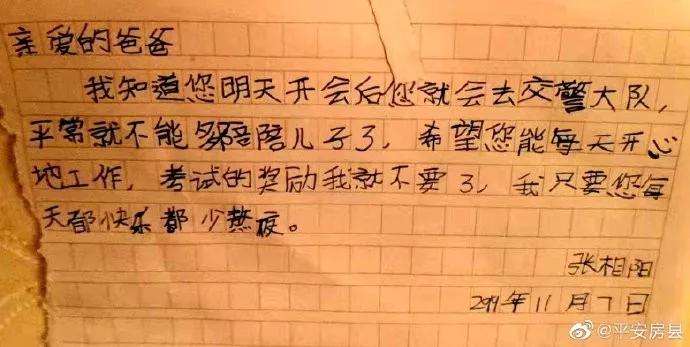 亲爱的爸爸
我知道您明天开会后您就会去交警大队,
平常就不能多陪陪儿子了,希望您能每天开心
地工作,考试的奖励我就不要了,我只要您每
天都快乐都少熬夜。
张相阳
2019年11月7日
@平安房县